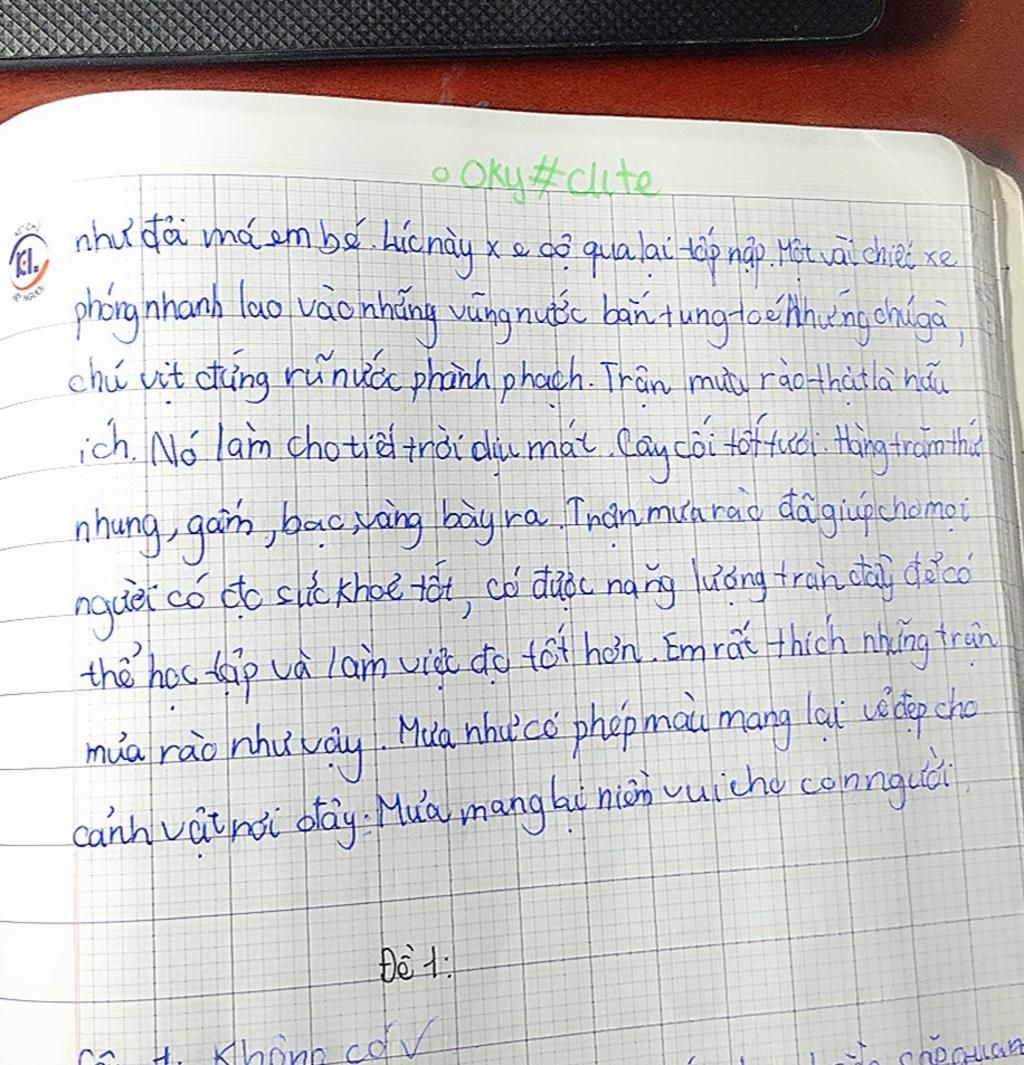 o Oky#clite
KL.
như đôi má em bé. Lúc này xe cộ qua lại tấp nập. Một vài chiếc xe
phóng nhanh lao vào những vũng nước bắn tung toé. Những chú gà,
chú vịt đứng rũ nước phành phạch. Trận mưa rào thật là hữu
ích. Nó làm cho tiết trời dịu mát. Cây cối tốt tươi. Hàng trăm thứ
nhung, gấm, bạc, vàng bày ra. Trận mưa rào đã giúp cho mọi
người có đc sức khoẻ tốt, có được năng lượng tràn đầy để có
thể học tập và làm việc đc tốt hơn. Em rất thích những trận
mưa rào như vậy. Mưa như có phép màu mang lại vẻ đẹp cho
cảnh vật nơi đây. Mưa mang lại niềm vui cho con người.
Đề 1:
1. Không có